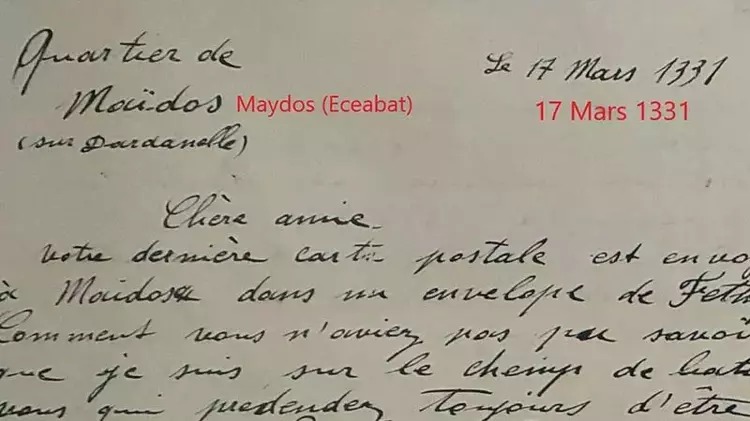 Quartier de
Maïdos Maydos (Eceabat)
(sur Dardanelle)
Le 17 Mars 1331
17 Mars 1331
Chère amie
votre dernière carte postale est envo
à Maidos dans un envelope de
Comment vous n'aviez pas pu savoi
que je suis sur le chemp de bata
vous qui pretendez toujours d'être